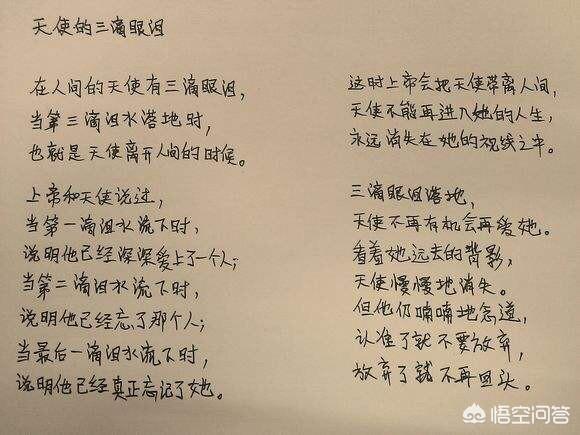 天使的三滴眼泪
在人间的天使有三滴眼泪，
当第三滴泪水落地时，
也就是天使离开人间的时候。
上帝和天使说过，
当第一滴泪水流下时，
说明他已经深深爱上了一个人；
当第二滴泪水流下时，
说明他已经忘了那个人；
当最后一滴泪水流下时，
说明他已经真正忘记了她。
这时上帝会把天使带离人间，
天使不能再进入她的人生，
永远消失在她的视线之中。
三滴眼泪落地，
天使不再有机会再爱她。
看着她远去的背影，
天使慢慢地消失。
但他仍喃喃地念道，
认准了就不要放弃，
放弃了就不再回头。
悟空问答